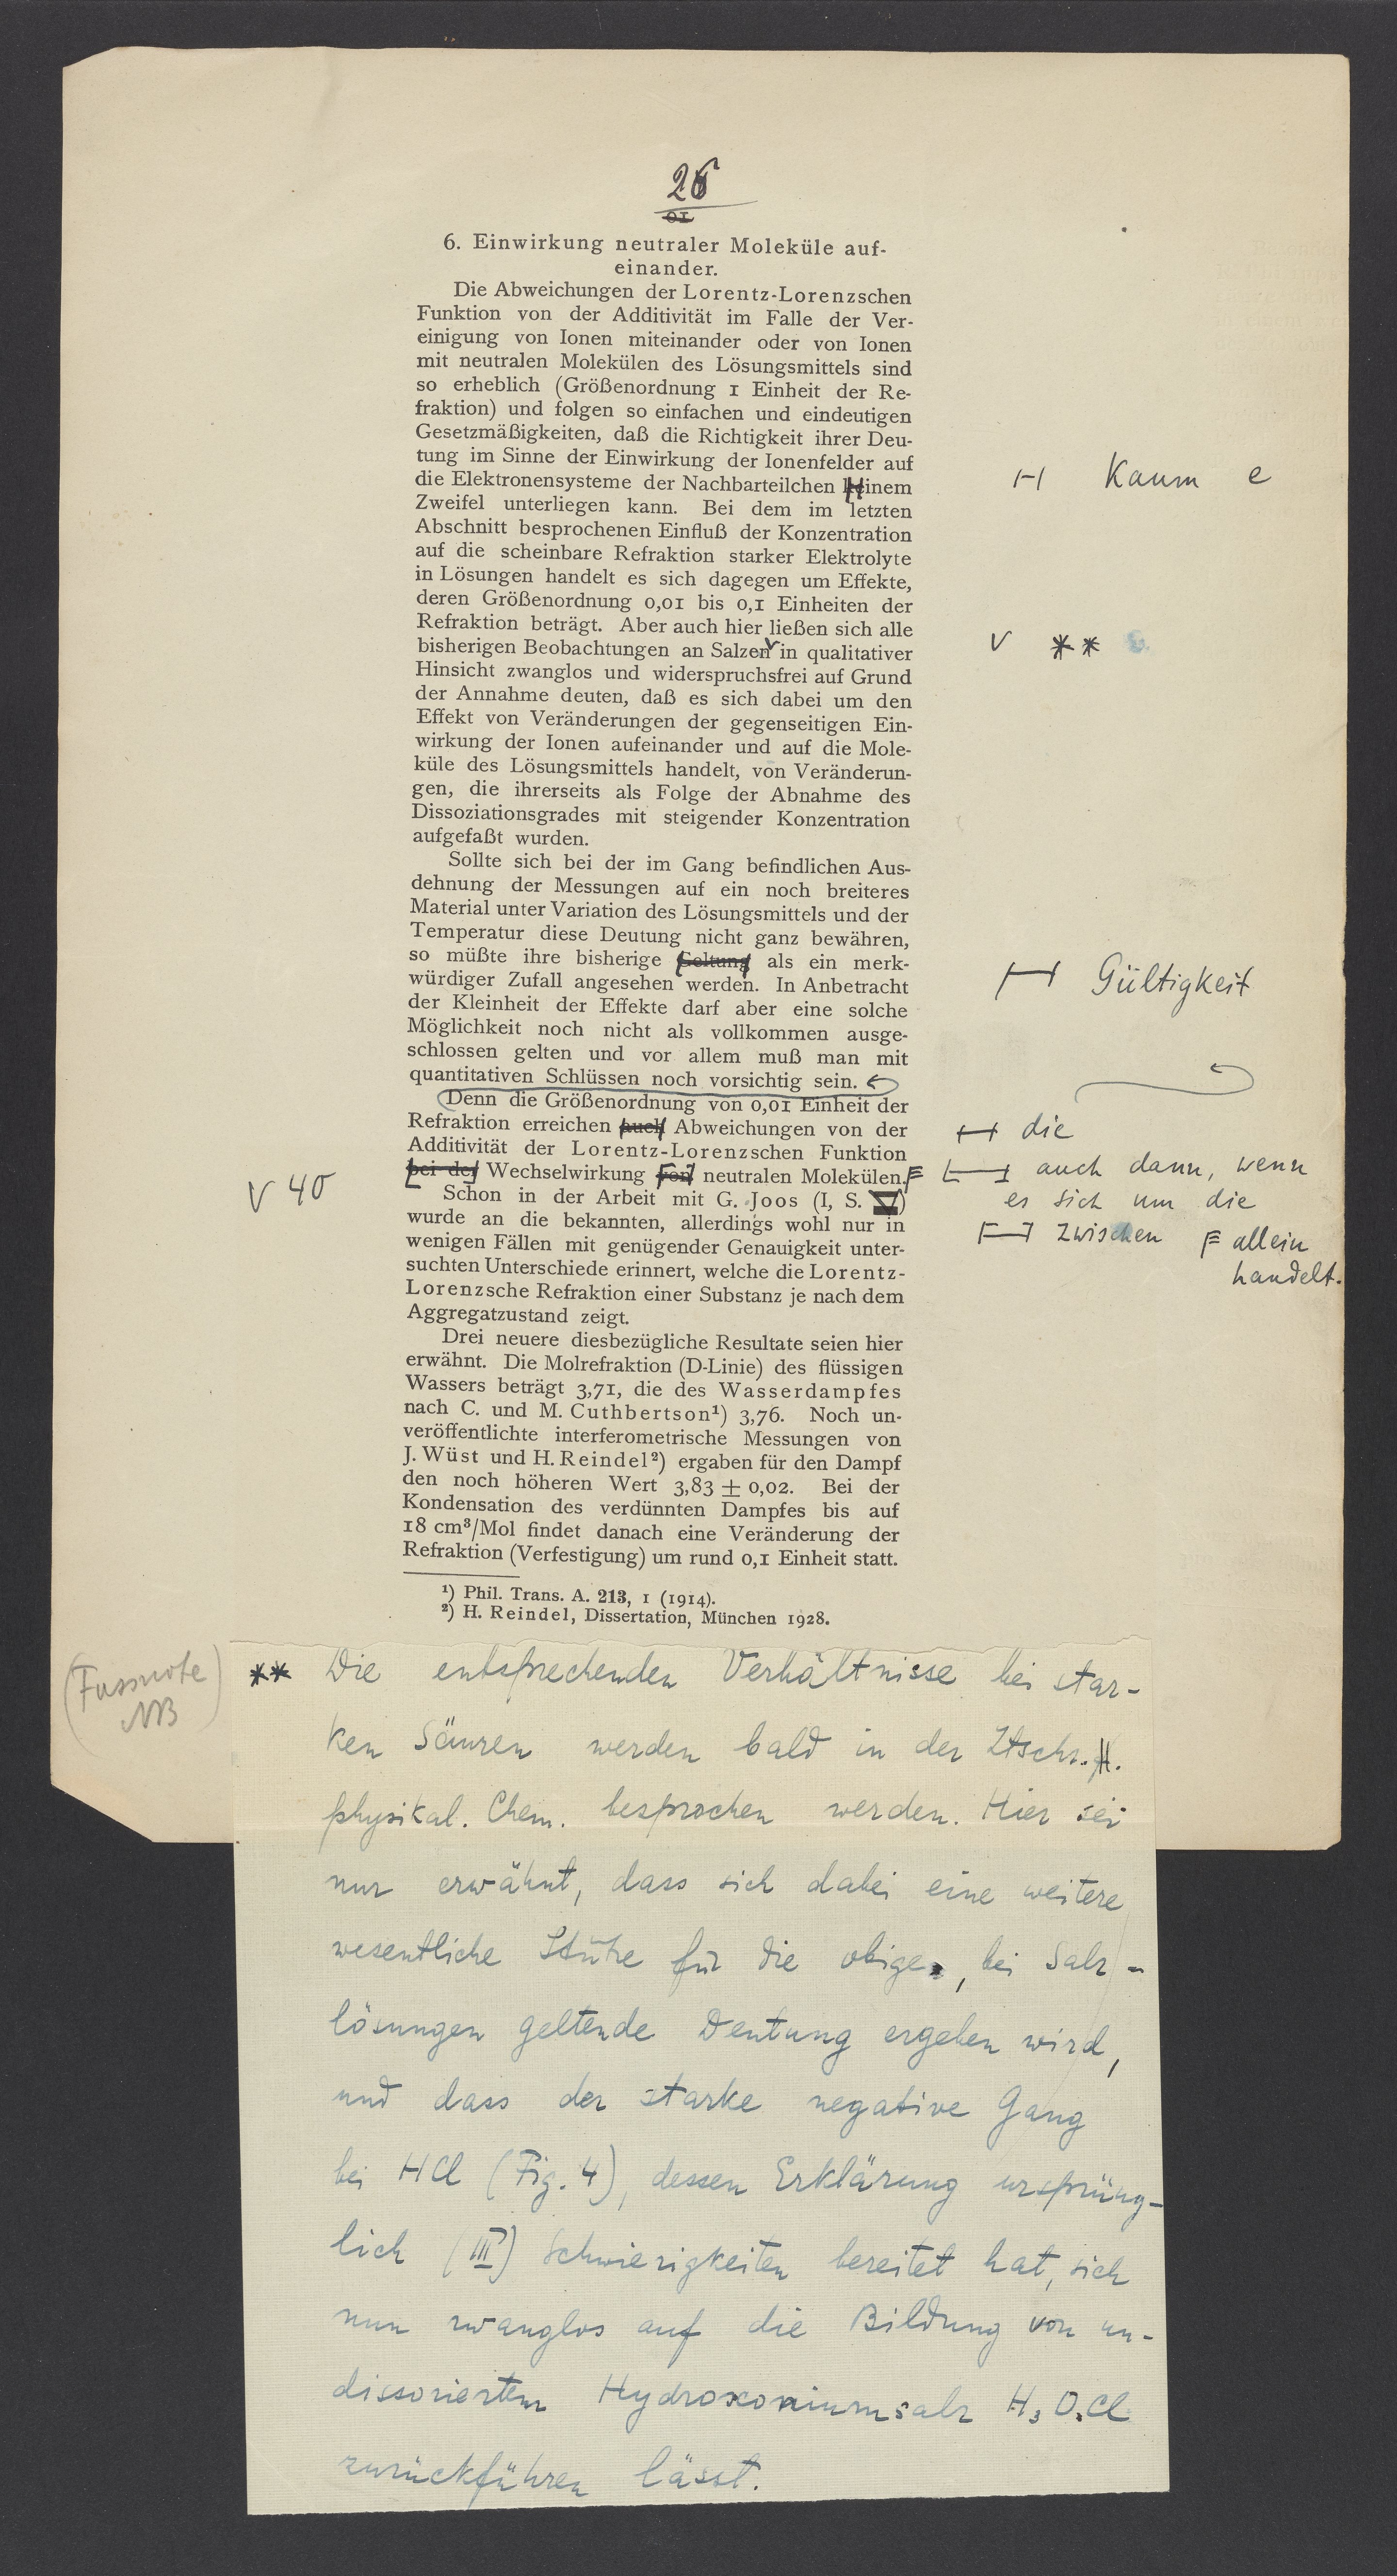 26
6. Einwirkung neutraler Moleküle auf-
einander.
Die Abweichungen der Lorentz-Lorenzschen
Funktion von der Additivität im Falle der Ver-
einigung von Ionen miteinander oder von Ionen
mit neutralen Molekülen des Lösungsmittels sind
so erheblich (Größenordnung 1 Einheit der Re-
fraktion) und folgen so einfachen und eindeutigen
Gesetzmäßigkeiten, daß die Richtigkeit ihrer Deu-
tung im Sinne der Einwirkung der Ionenfelder auf
die Elektronensysteme der Nachbarteilchen keinem
Kaum e
Zweifel unterliegen kann. Bei dem im letzten
Abschnitt besprochenen Einfluß der Konzentration
auf die scheinbare Refraktion starker Elektrolyte
in Lösungen handelt es sich dagegen um Effekte,
deren Größenordnung 0,01 bis 0,1 Einheiten der
Refraktion beträgt. Aber auch hier ließen sich alle
bisherigen Beobachtungen an Salzen in qualitativer
V **
Hinsicht zwanglos und widerspruchsfrei auf Grund
der Annahme deuten, daß es sich dabei um den
Effekt von Veränderungen der gegenseitigen Ein-
wirkung der Ionen aufeinander und auf die Mole-
küle des Lösungsmittels handelt, von Veränderun-
gen, die ihrerseits als Folge der Abnahme des
Dissoziationsgrades mit steigender Konzentration
aufgefaßt wurden.
Sollte sich bei der im Gang befindlichen Aus-
dehnung der Messungen auf ein noch breiteres
Material unter Variation des Lösungsmittels und der
Temperatur diese Deutung nicht ganz bewähren,
so müßte ihre bisherige Geltung als ein merk-
Gültigkeit
würdiger Zufall angesehen werden. In Anbetracht
der Kleinheit der Effekte darf aber eine solche
Möglichkeit noch nicht als vollkommen ausge-
schlossen gelten und vor allem muß man mit
quantitativen Schlüssen noch vorsichtig sein.
Denn die Größenordnung von 0,01 Einheit der
Refraktion erreichen auch Abweichungen von der
die
Additivität der Lorentz-Lorenzschen Funktion
bei der Wechselwirkung von neutralen Molekülen.
auch dann, wenn
es sich um die
zwischen
allein
handelt.
V 40
Schon in der Arbeit mit G. Joos (I, S. )
wurde an die bekannten, allerdings wohl nur in
wenigen Fällen mit genügender Genauigkeit unter-
suchten Unterschiede erinnert, welche die Lorentz-
Lorenzsche Refraktion einer Substanz je nach dem
Aggregatzustand zeigt.
Drei neuere diesbezügliche Resultate seien hier
erwähnt. Die Molrefraktion (D-Linie) des flüssigen
Wassers beträgt 3,71, die des Wasserdampfes
nach C. und M. Cuthbertson¹) 3,76. Noch un-
veröffentlichte interferometrische Messungen von
J. Wüst und H. Reindel²) ergaben für den Dampf
den noch höheren Wert 3,83 ± 0,02. Bei der
Kondensation des verdünnten Dampfes bis auf
18 cm³/Mol findet danach eine Veränderung der
Refraktion (Verfestigung) um rund 0,1 Einheit statt.
¹) Phil. Trans. A. 213, 1 (1914).
²) H. Reindel, Dissertation, München 1928.
(Fussnote)
NB
** Die entsprechenden Verhältnisse bei star-
ken Säuren werden bald in der Ztschr.
physikal. Chem. besprochen werden. Hier sei
nur erwähnt, dass sich dabei eine weitere
wesentliche Stütze für die obige, bei Salz-
lösungen geltende Deutung ergeben wird,
und dass der starke negative Gang
bei HCl (Fig. 4), dessen Erklärung ursprüng-
lich (III) Schwierigkeiten bereitet hat, sich
nun zwanglos auf die Bildung von un-
dissoziertem Hydroxoniumsalz H₃O.Cl
zurückführen lässt.